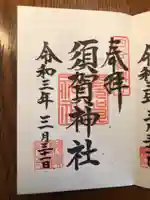 奉拝
須賀神社
令和三年三月三十一日
令和三年